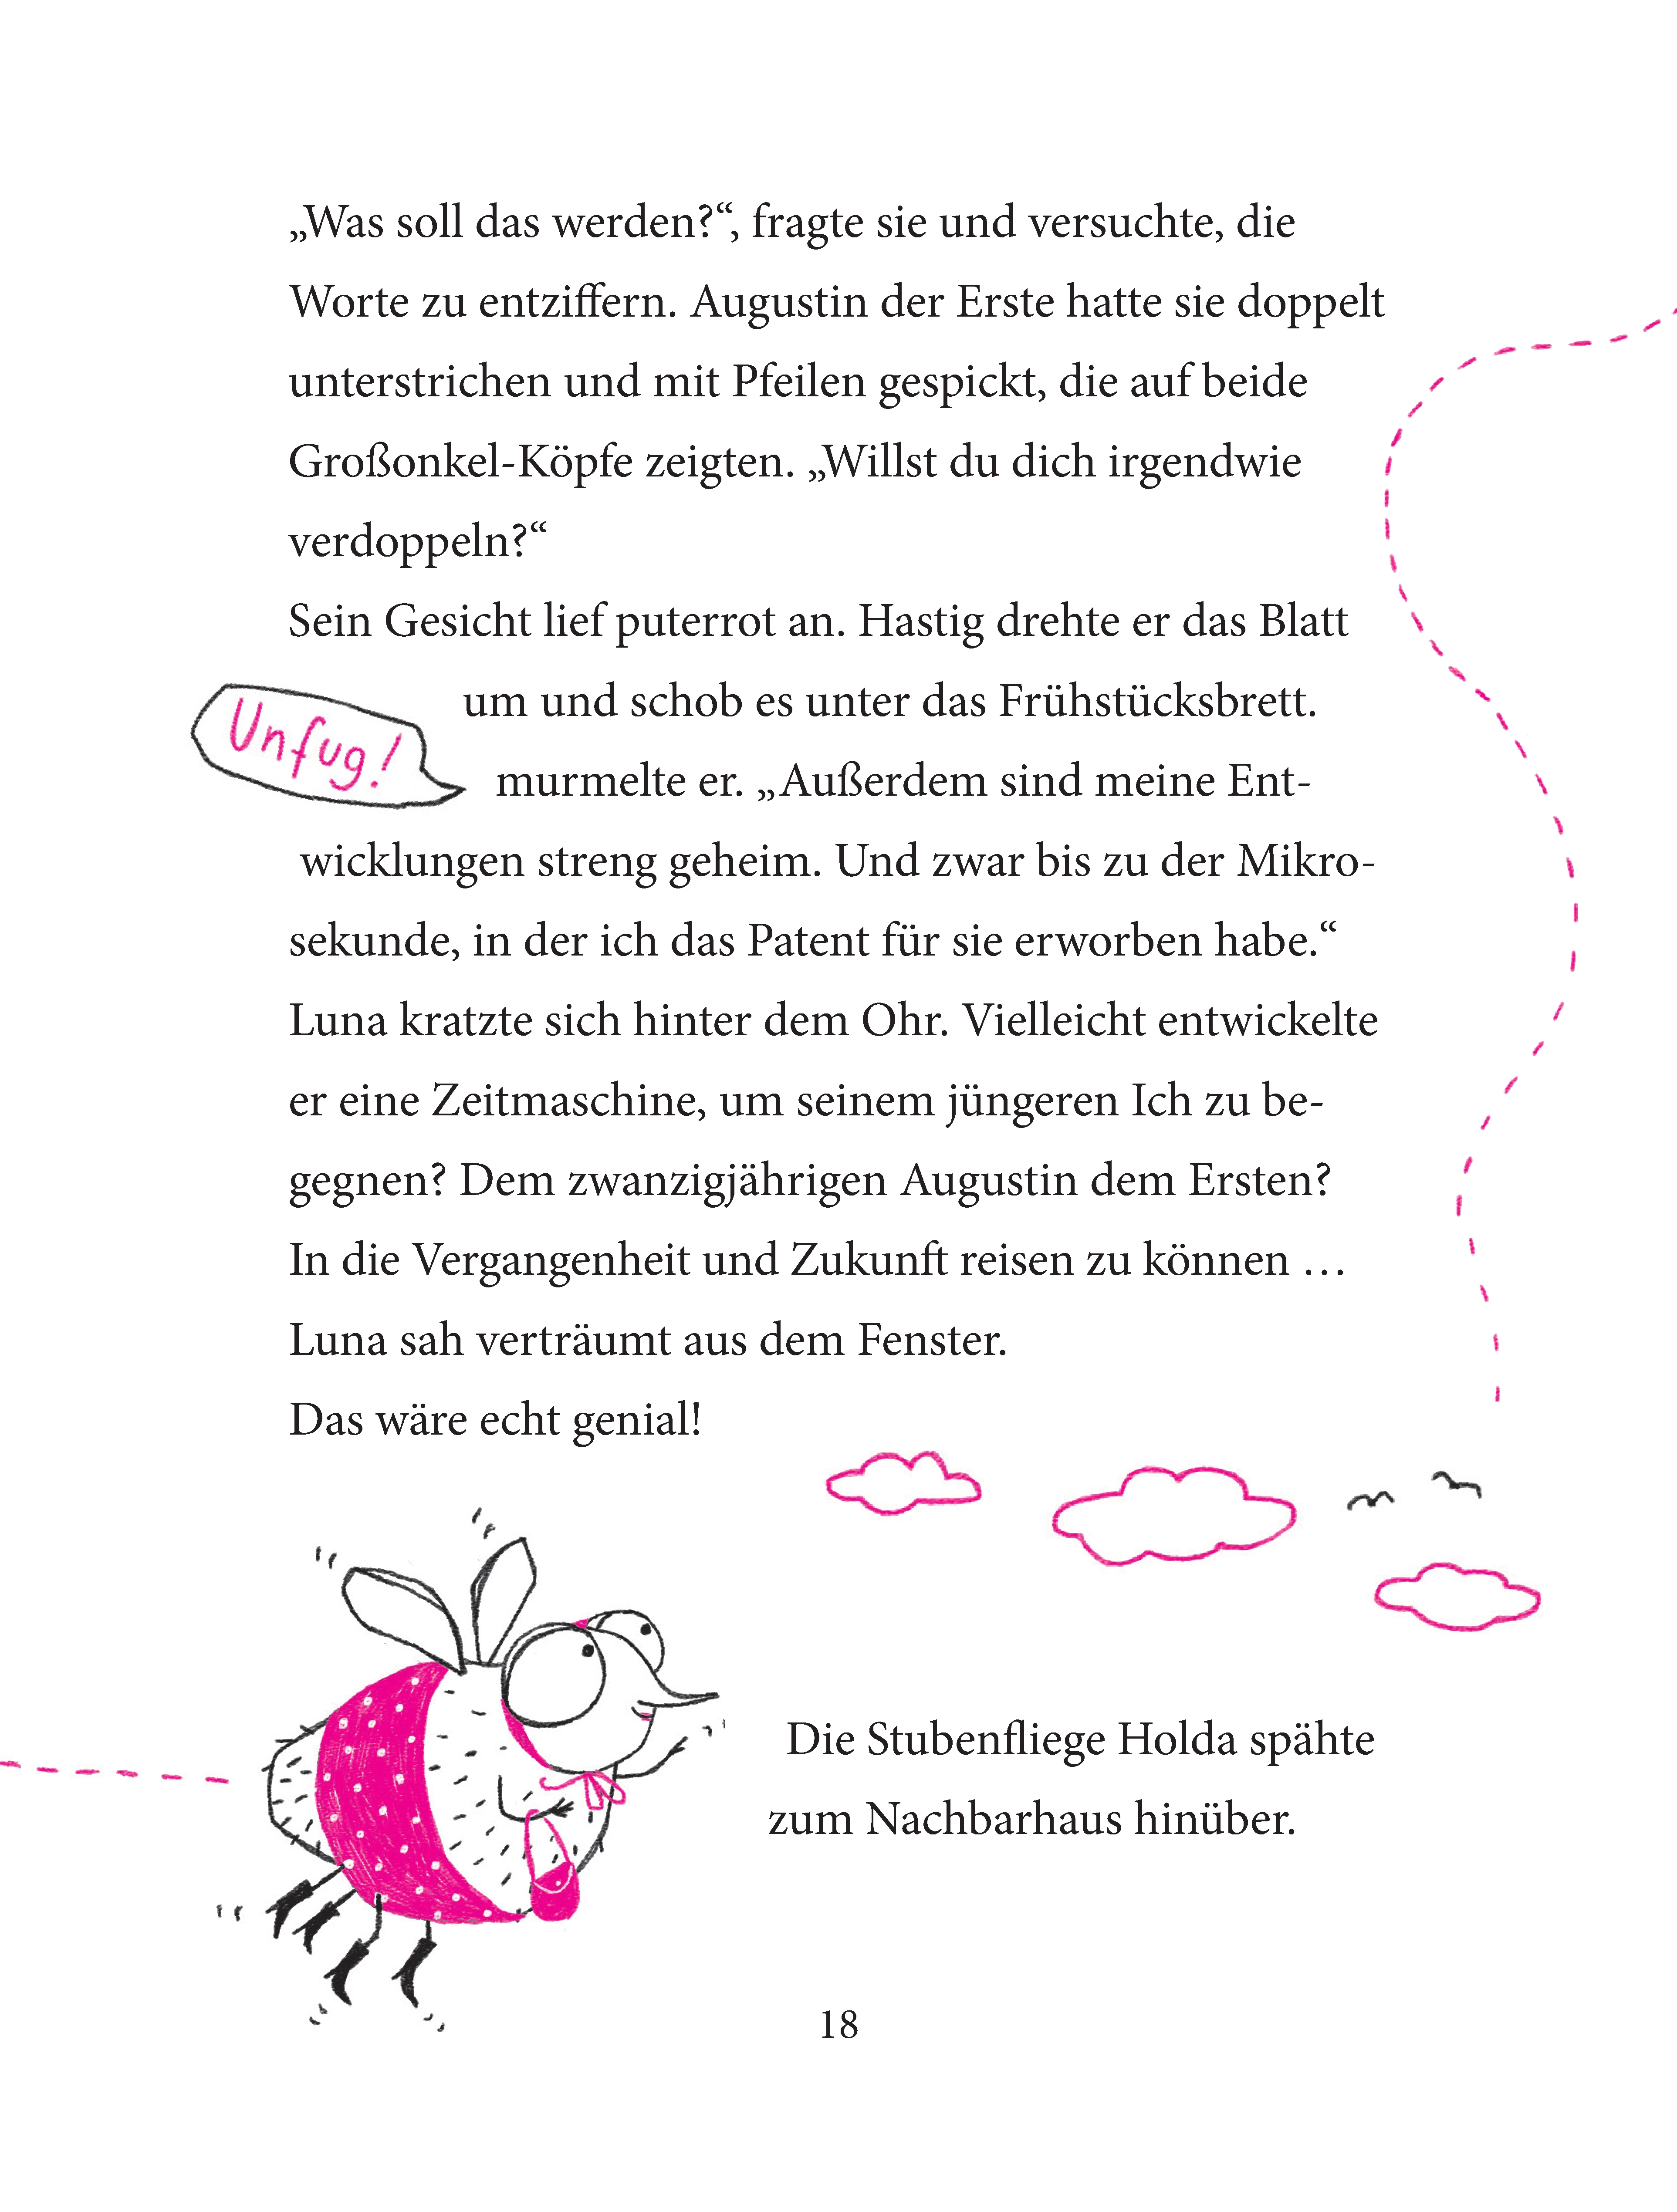 „Was soll das werden?“, fragte sie und versuchte, die
Worte zu entziffern. Augustin der Erste hatte sie doppelt
unterstrichen und mit Pfeilen gespickt, die auf beide
Großonkel-Köpfe zeigten. „Willst du dich irgendwie
verdoppeln?“
Sein Gesicht lief puterrot an. Hastig drehte er das Blatt
um und schob es unter das Frühstücksbrett.
Unfug!
murmelte er. „Außerdem sind meine Ent-
wicklungen streng geheim. Und zwar bis zu der Mikro-
sekunde, in der ich das Patent für sie erworben habe.“
Luna kratzte sich hinter dem Ohr. Vielleicht entwickelte
er eine Zeitmaschine, um seinem jüngeren Ich zu be-
gegnen? Dem zwanzigjährigen Augustin dem Ersten?
In die Vergangenheit und Zukunft reisen zu können …
Luna sah verträumt aus dem Fenster.
Das wäre echt genial!
Die Stubenfliege Holda spähte
zum Nachbarhaus hinüber.
18